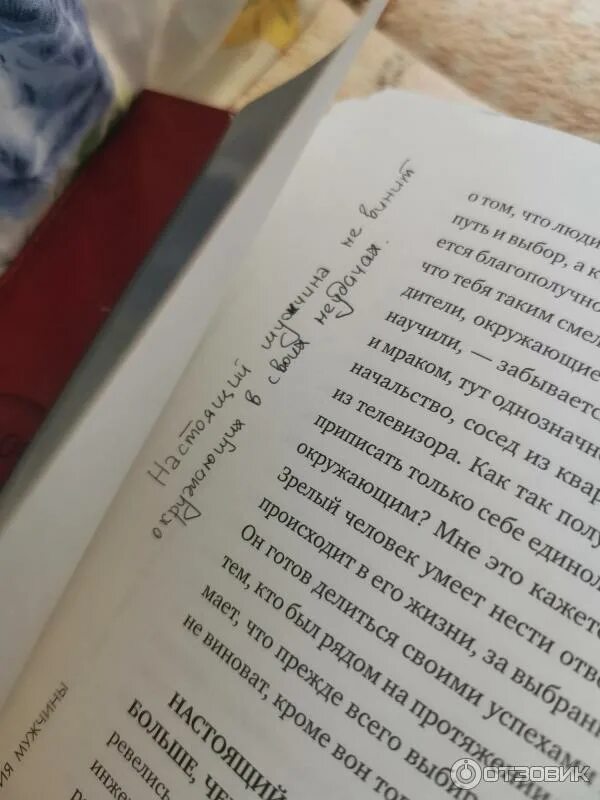 Настоящий мужчина не винит
окружающих в своих неудачах.
о том, что люди
путь и выбор, а к
ется благополучно
что тебя таким смел
дители, окружающие
научили, — забывается
и мраком, тут однозначно
начальство, сосед из квар
из телевизора. Как так полу
приписать только себе единол
окружающим? Мне это кажетс
Зрелый человек умеет нести отве
происходит в его жизни, за выбранн
Он готов делиться своими успехами
тем, кто был рядом на протяжении
мает, что прежде всего выбир
не виноват, кроме вон тог
НАСТОЯЩИЙ
БОЛЬШЕ, ЧЕ
ревелись
инже
ИЯ МУЖЧИНЫ
ОТЗОВИК